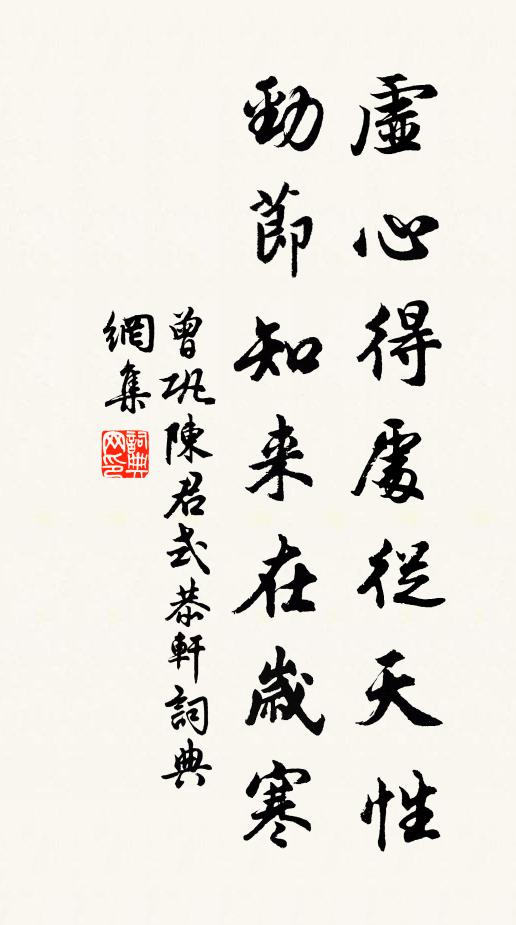 虛心得處從天性
勁節知来在歲寒
曾鞏陳君式恭軒詞典
網集
詞典
网印